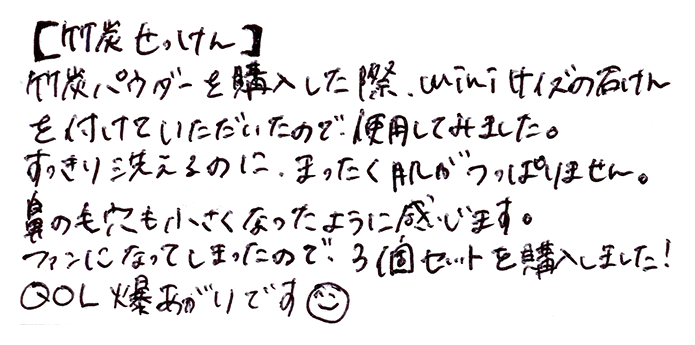 【竹炭せっけん】
竹炭パウダーを購入した際、miniサイズの石けん
を付けていただいたので、使用してみました。
すっきり洗えるのに、まったく肌がつっぱりません。
鼻の毛穴も小さくなったように感じます。
ファンになってしまったので、3個セットを購入しました!
QOL爆あがりです☺